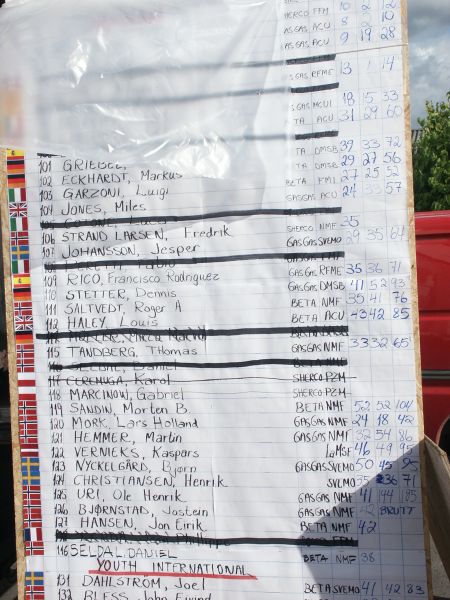 SHERCO FFM 10 2 12
GASGAS ACU 8 2 10
GASGAS ACU 9 19 28
GASGAS RFME 13 1 14
GASGAS MCUI 18 15 33
TA ACU 31 29 60
TA DMSB 39 33 72
101 GRIEBEL, TA DMSB 29 27 56
102 ECKHARDT, Markus BETA FMI 27 25 52
103 GARZONI, Luigi GASGAS ACU 24 33 57
104 JONES, Miles
106 STRAND LARSEN, Fredrik SHERCO NMF 35
107 JOHANSSON, Jesper GASGAS SVEMO 29 35 64
109 RICO, Francisco Rodriguez GASGAS RFME 35 36 71
110 STETTER, Dennis GASGAS DMSB 41 52 93
111 SALTVEDT, Roger A BETA NMF 35 41 76
112 HALEY, Louis BETA ACU 43 42 85
115 TANDBERG, Thomas GASGAS NMF 33 32 65
117 CEREMUGA, Karol SHERCO PZM
118 MARCINOW, Gabriel SHERCO PZM
119 SANDIN, Morten B. BETA NMF 52 52 104
120 MORK, Lars Holland GASGAS NMF 24 18 42
121 HEMMER, Martin GASGAS NMF 32 54 86
122 VERNIEKS, Kaspars LaMSF 46 49
123 NYCKELGÅRD, Bjørn GASGAS SVEMO 50 45 95
124 CHRISTIANSEN, Henrik SVEMO 35 36 71
125 URI, Ole Henrik GASGAS NMF 41 44
126 BJØRNSTAD, Jostein GASGAS NMF 42 BRUTT
127 HANSEN, Jon Eirik BETA NMF 42
116 SELDAL, DANIEL BETA NMF 38
YOUTH INTERNATIONAL
131 DAHLSTRØM, Joel BETA SVEMO 41 42 83
132 BLESS, John